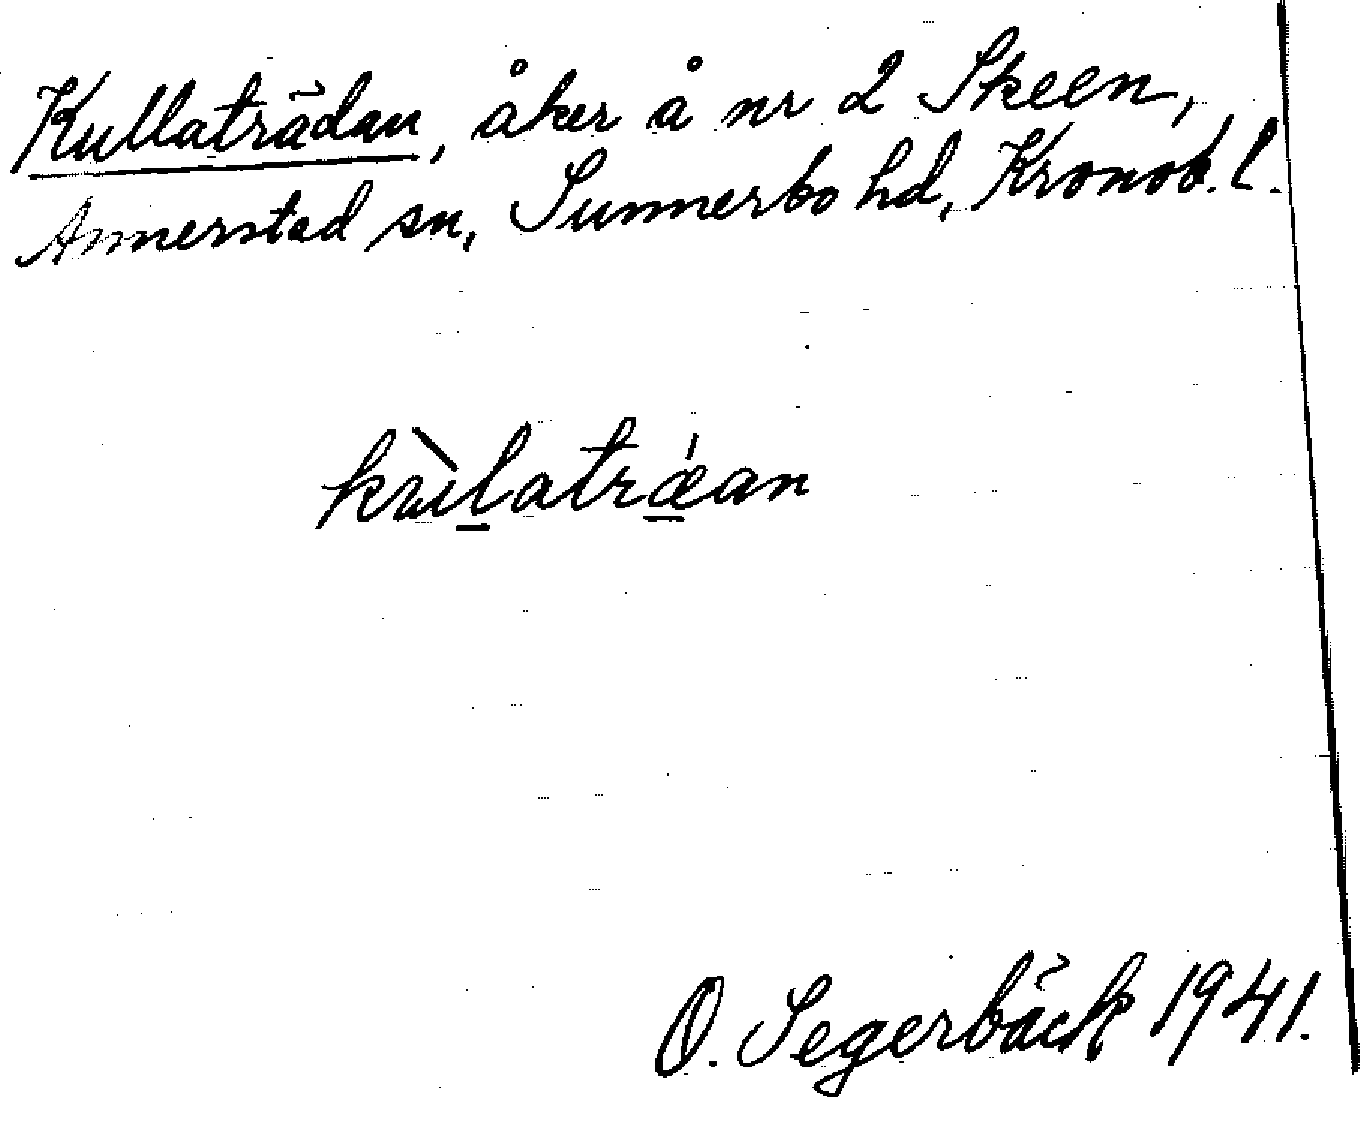 Kullaträdan, åker å nr 2 Skeen,
Annerstad sn, Sunnerbo hd, Kronob. l.
kùlatrǽan
O. Segerbäck 1941.